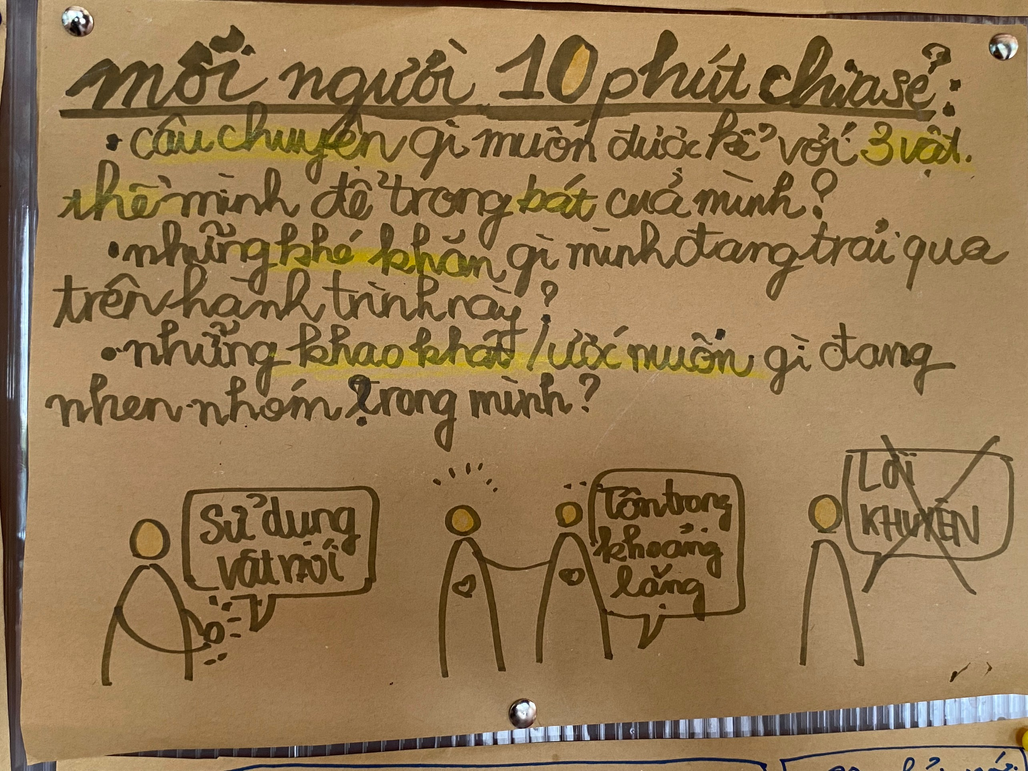 mỗi người 10 phút chia sẻ:
• câu chuyện gì muốn được kể với 3 vật
thể mình để trong bát của mình?
• những khó khăn gì mình đang trải qua
trên hành trình này?
• những khao khát / ước muốn gì đang
nhen nhóm trong mình?
Sử dụng
vật nói
Tôn trọng
khoảng
lặng
LỜI
KHUYÊN